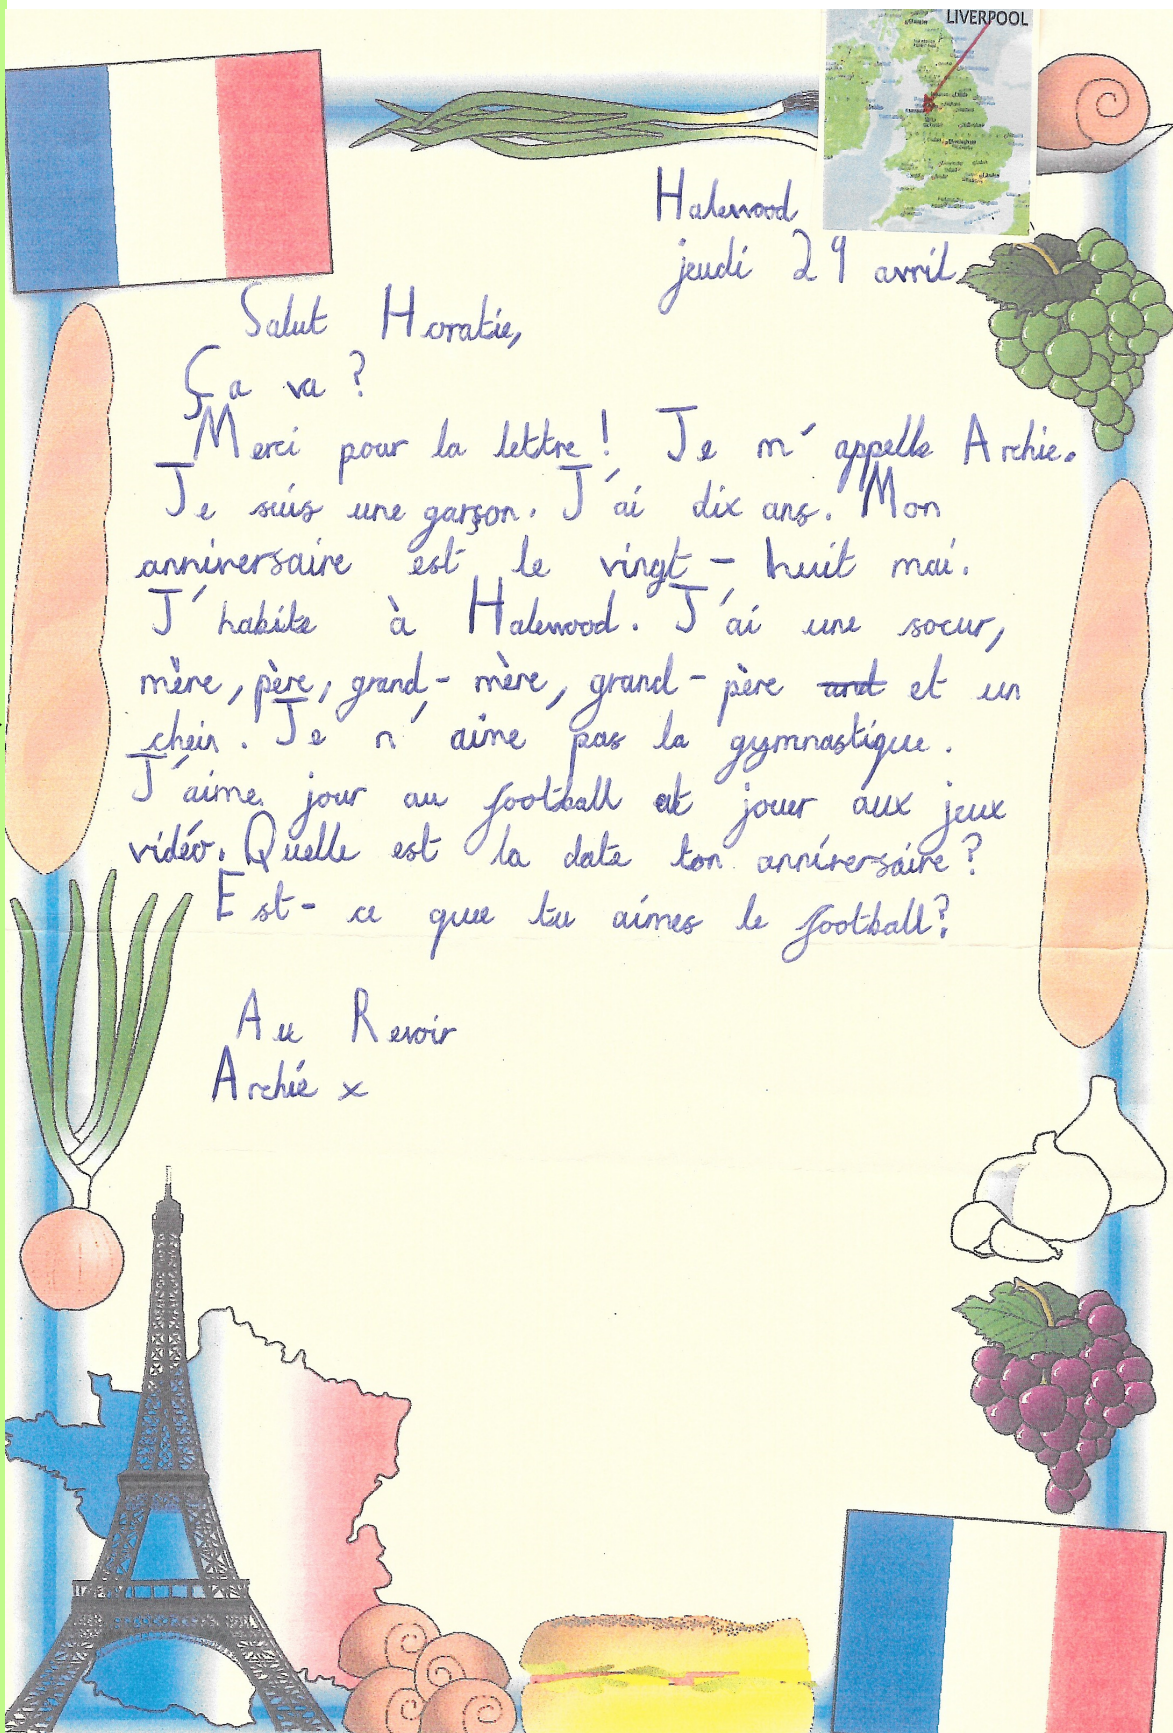 LIVERPOOL
Halewood
jeudi 29 avril
Salut Horatie,
Ça va ?
Merci pour la lettre ! Je m'appelle Archie.
Je suis une garçon. J'ai dix ans. Mon
anniversaire est le vingt-huit mai.
J'habite à Halewood. J'ai une soeur,
mère, père, grand-mère, grand-père and et un
chein. Je n'aime pas la gymnastique.
J'aime jour au football et jouer aux jeux
vidéo. Quelle est la date ton anniversaire ?
Est-ce que tu aimes le football?
Au Revoir
Archie x